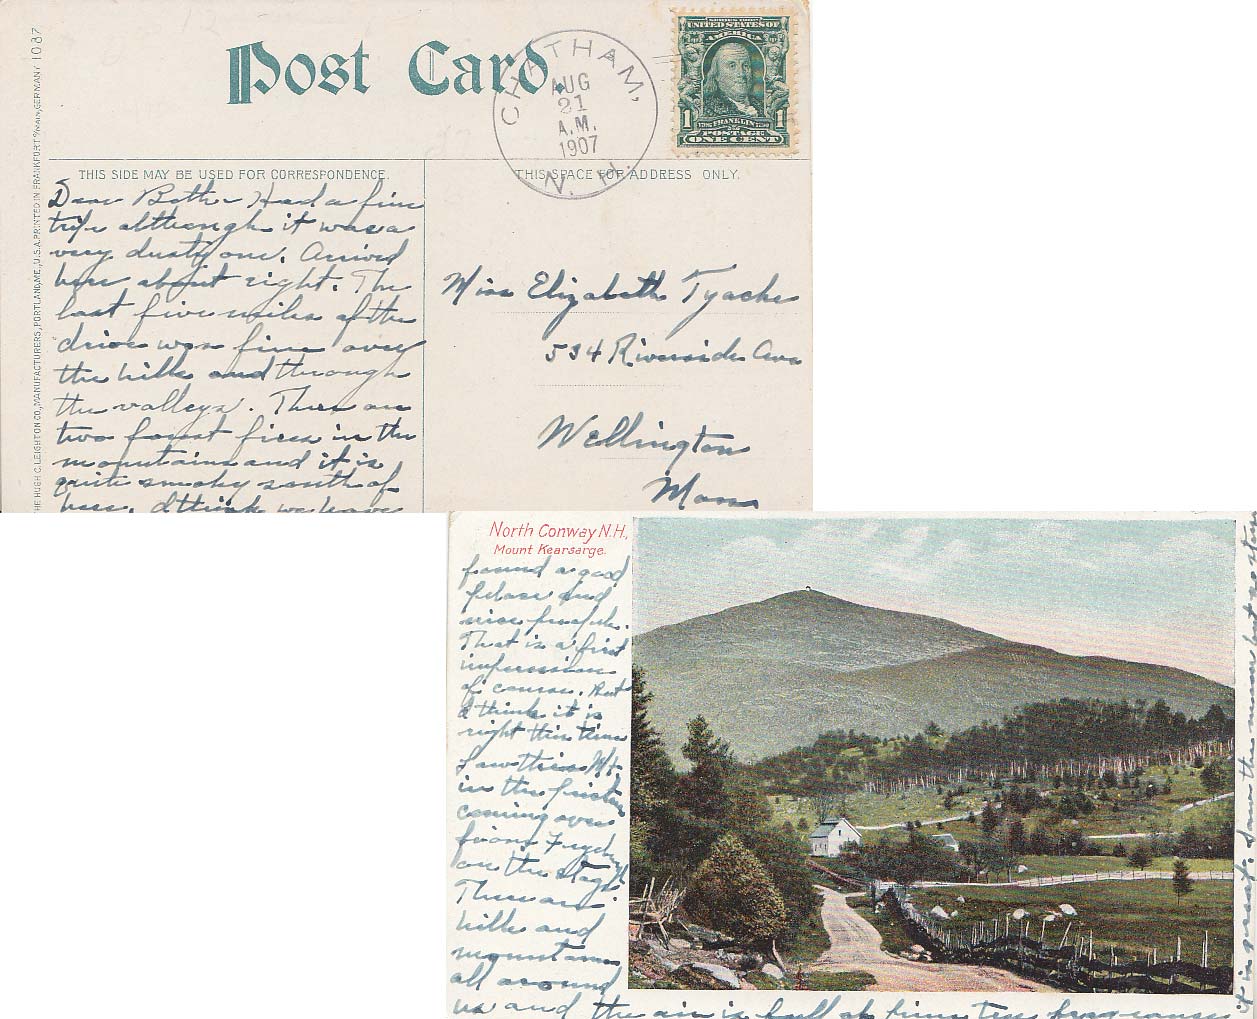 Post Card.
CHATHAM,
AUG
21
A.M.
1907
N. H.
UNITED STATES OF
AMERICA
1 FRANKLIN 1
POSTAGE
ONE CENT
THE HUGH C. LEIGHTON CO., MANUFACTURERS, PORTLAND, ME., U.S.A. PRINTED IN FRANKFORT O/MAIN, GERMANY 1087
THIS SIDE MAY BE USED FOR CORRESPONDENCE.
Dear Had a fine
trip although it was a
very dusty one. Arrived
here about eight. The
last five miles of the
drive was fine over
the hills and through
the valleys. There are
two forest fires in the
mountains and it is
quite smoky south of
here. I think we have
THIS SPACE FOR ADDRESS ONLY.
Miss Elizabeth
534 Riverside Ave
Wellington
Mass
North Conway N.H.,
Mount Kearsarge.
found a good
place and
nice people.
That is a first
impression
of course. But
I think it is
right this time
Saw this Mt
in the
coming over
from
on the stage
There are
hills and
mountains
all around
us and the air is full of pine tree fragrance
it is great. Saw the moon last